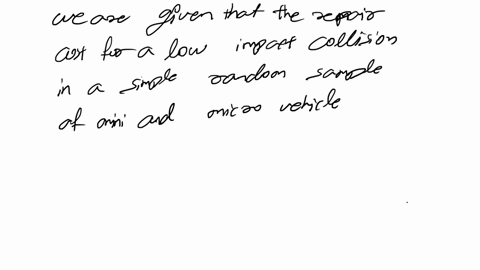 we are given that the repair
cost for a low impact collision
in a simple random sample
of mini and micro vehicle